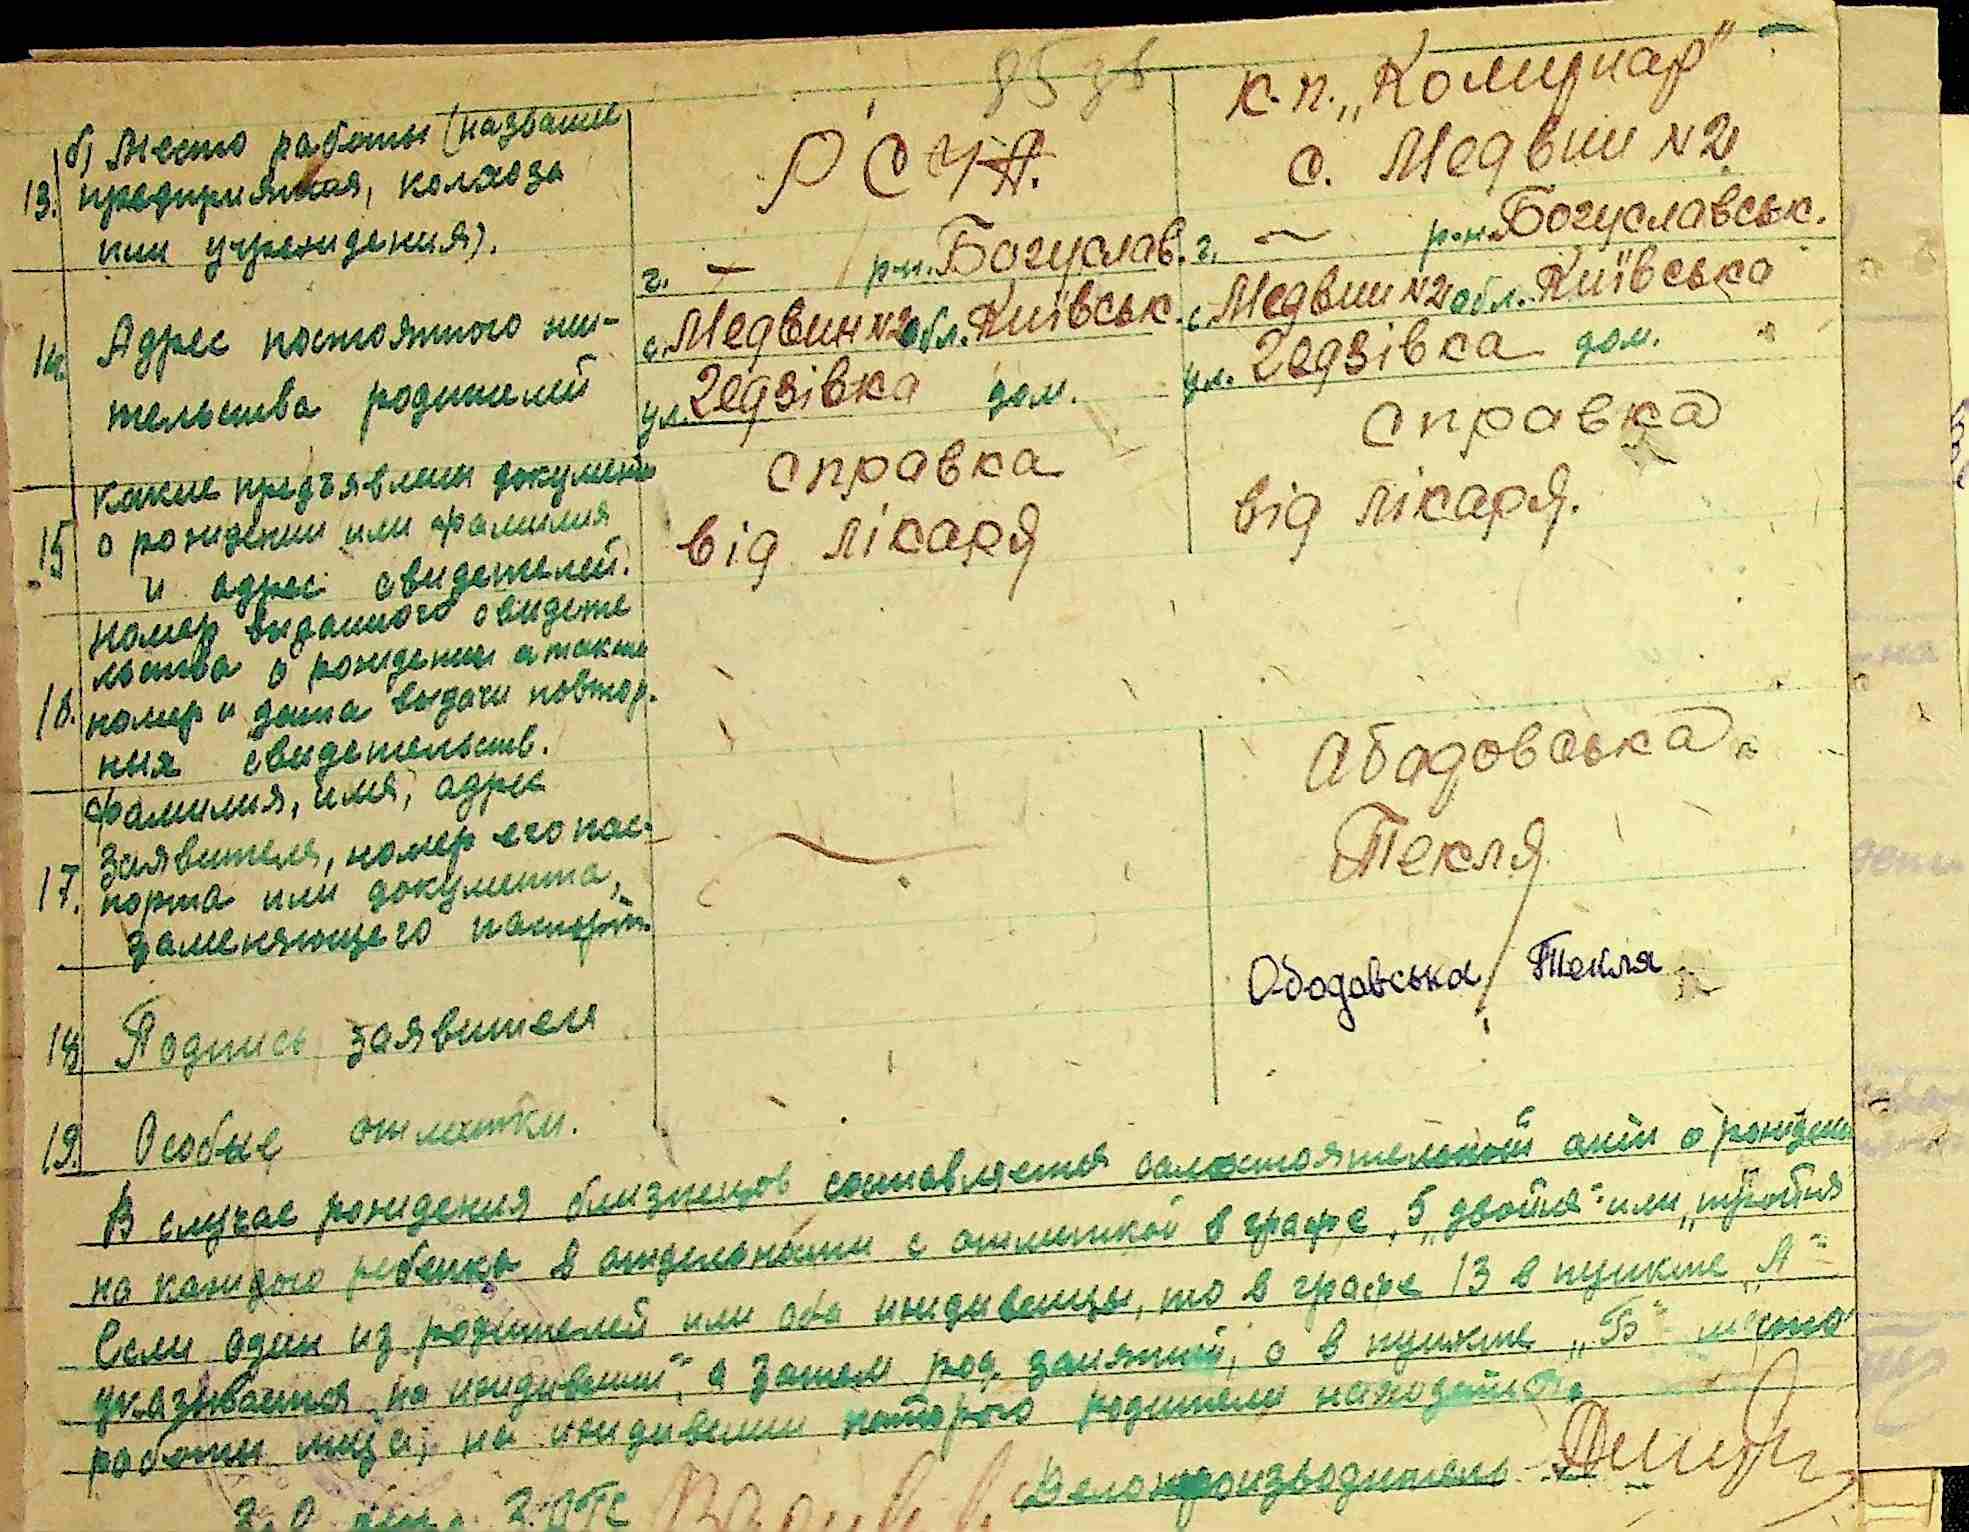 к.п. „Комунар"
б) Место работы (название
Р С Ч А.
с. Медвин №2.
13. предприятия, колхоза
или учреждения).
г. — р-н. Богуслав. г. — р-н. Богуславськ.
14. Адрес постоянного жи-
с. Медвин №2 обл. Київськ. с. Медвин №2 обл. Київська
тельства родителей
ул. Гедзівка дом. ул. Гедзівка дом.
какие предъявлены документы
справка справка
15 о рождении или фамилия
від лікаря від лікаря.
и адрес свидетелей.
номер выданного свидете
льства о рождении а также
16. номер и дата выдачи повтор.
ных свидетельств.
фамилия, имя, адрес
Абадовська
заявителя, номер его пас-
Текля
17. порта или документа,
заменяющего паспорт.
Ободовська Текля
18 Подпись заявителя
19. Особые отметки.
В случае рождения близнецов составляется самостоятельный акт о рождении
на каждого ребенка в отдельности с отметкой в графе 5 „двойня" или „тройня
Если один из родителей или оба иждивенцы, то в графе 13 в пункте „А"
указывается на иждивении, а затем род занятий, а в пункте „Б" место
работы лица, на иждивении которого родители находятся.
Делопроизводитель